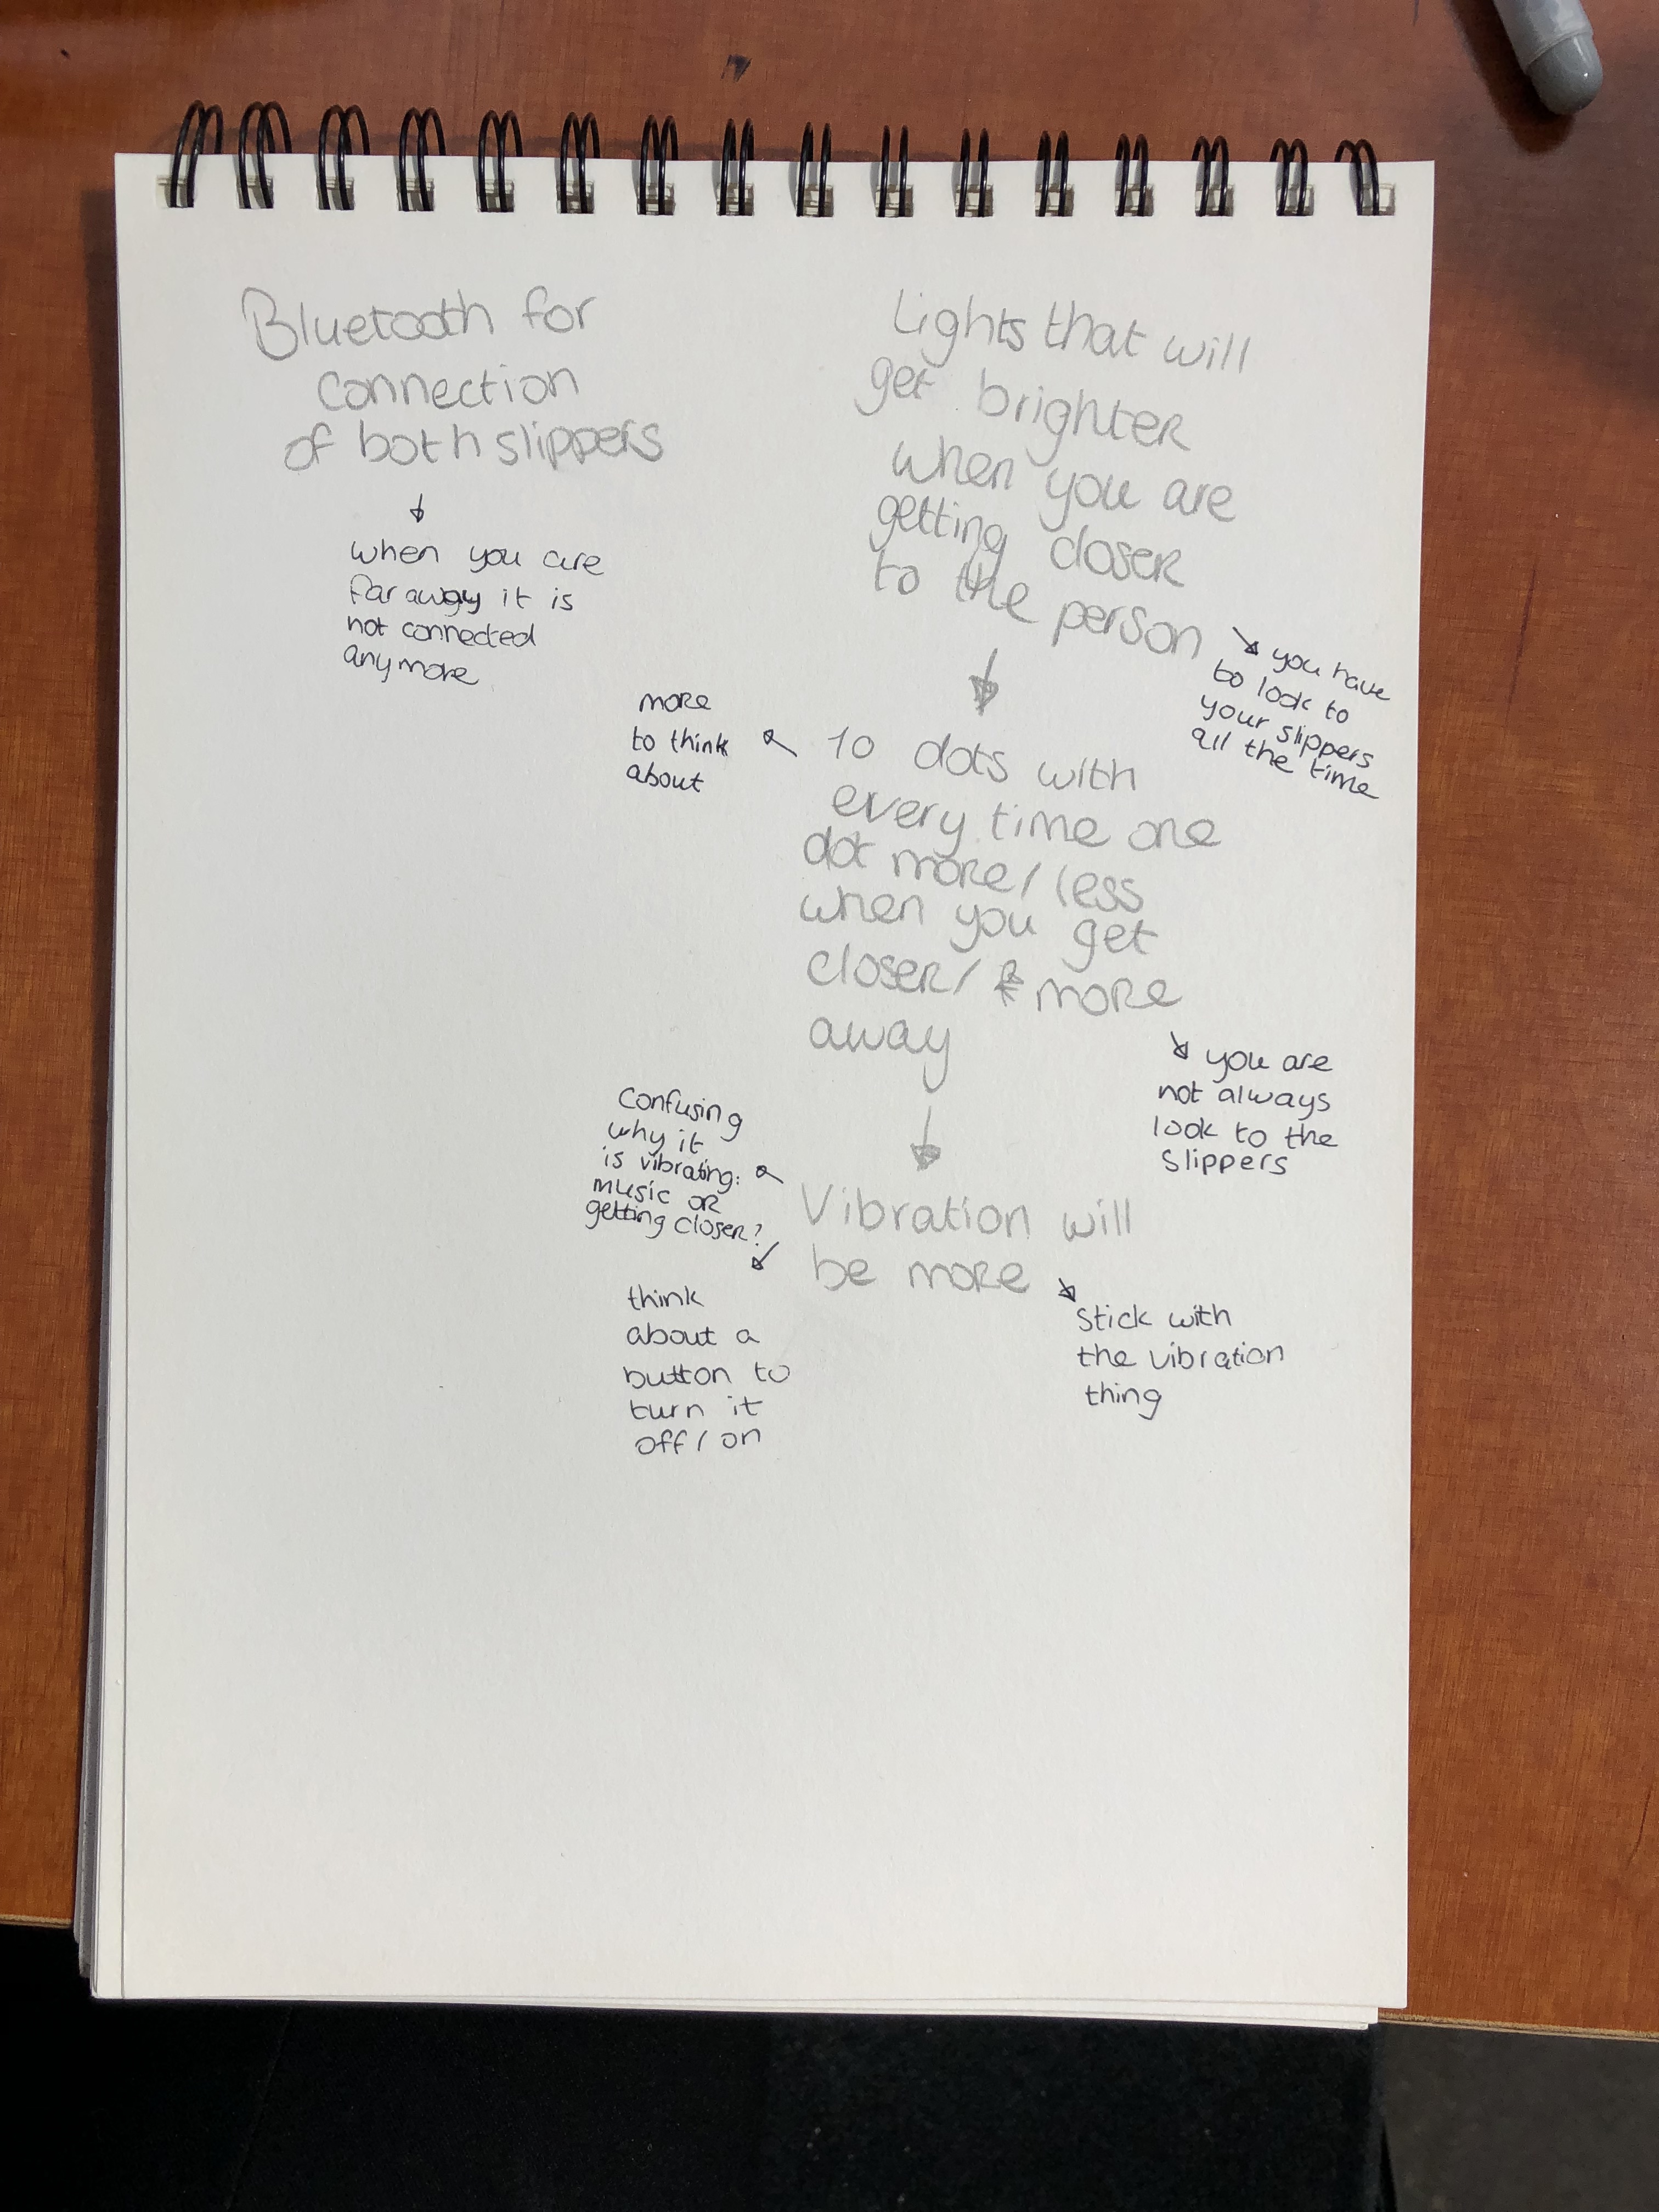 Bluetooth for
connection
of both slippers
when you are
far away it is
not connected
anymore
Lights that will
get brighter
when you are
getting closer
to the person
you have
to look to
your slippers
all the time
more
to think
about
10 dots with
every time one
dot more/less
when you get
closer/ more
away
you are
not always
look to the
slippers
Confusing
why it
is vibrating:
music or
getting closer?
think
about a
button to
turn it
off/on
Vibration will
be more
stick with
the vibration
thing